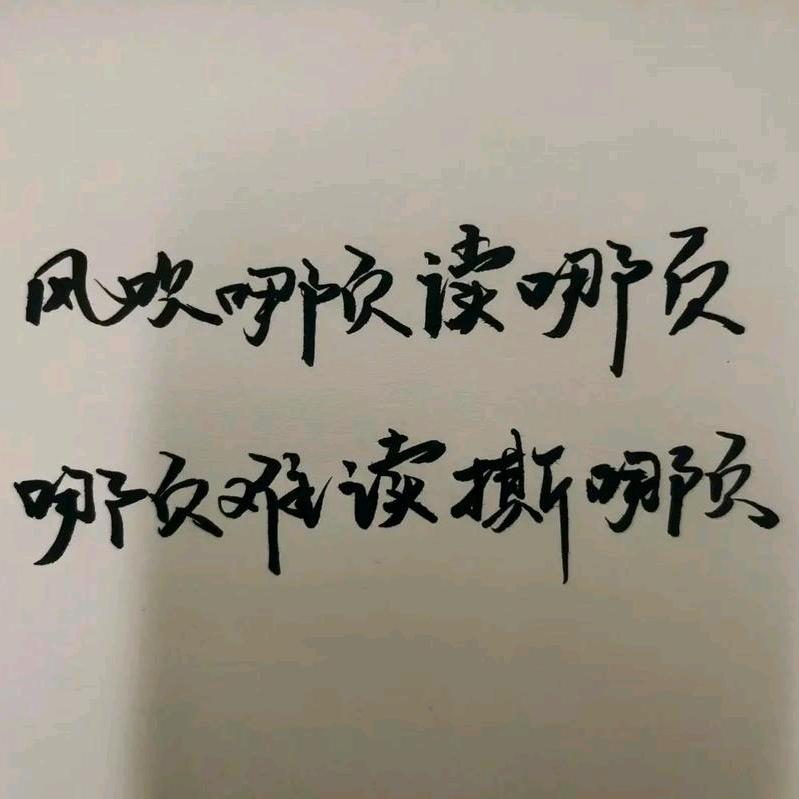 风吹哪页读哪页
哪页难读撕哪页